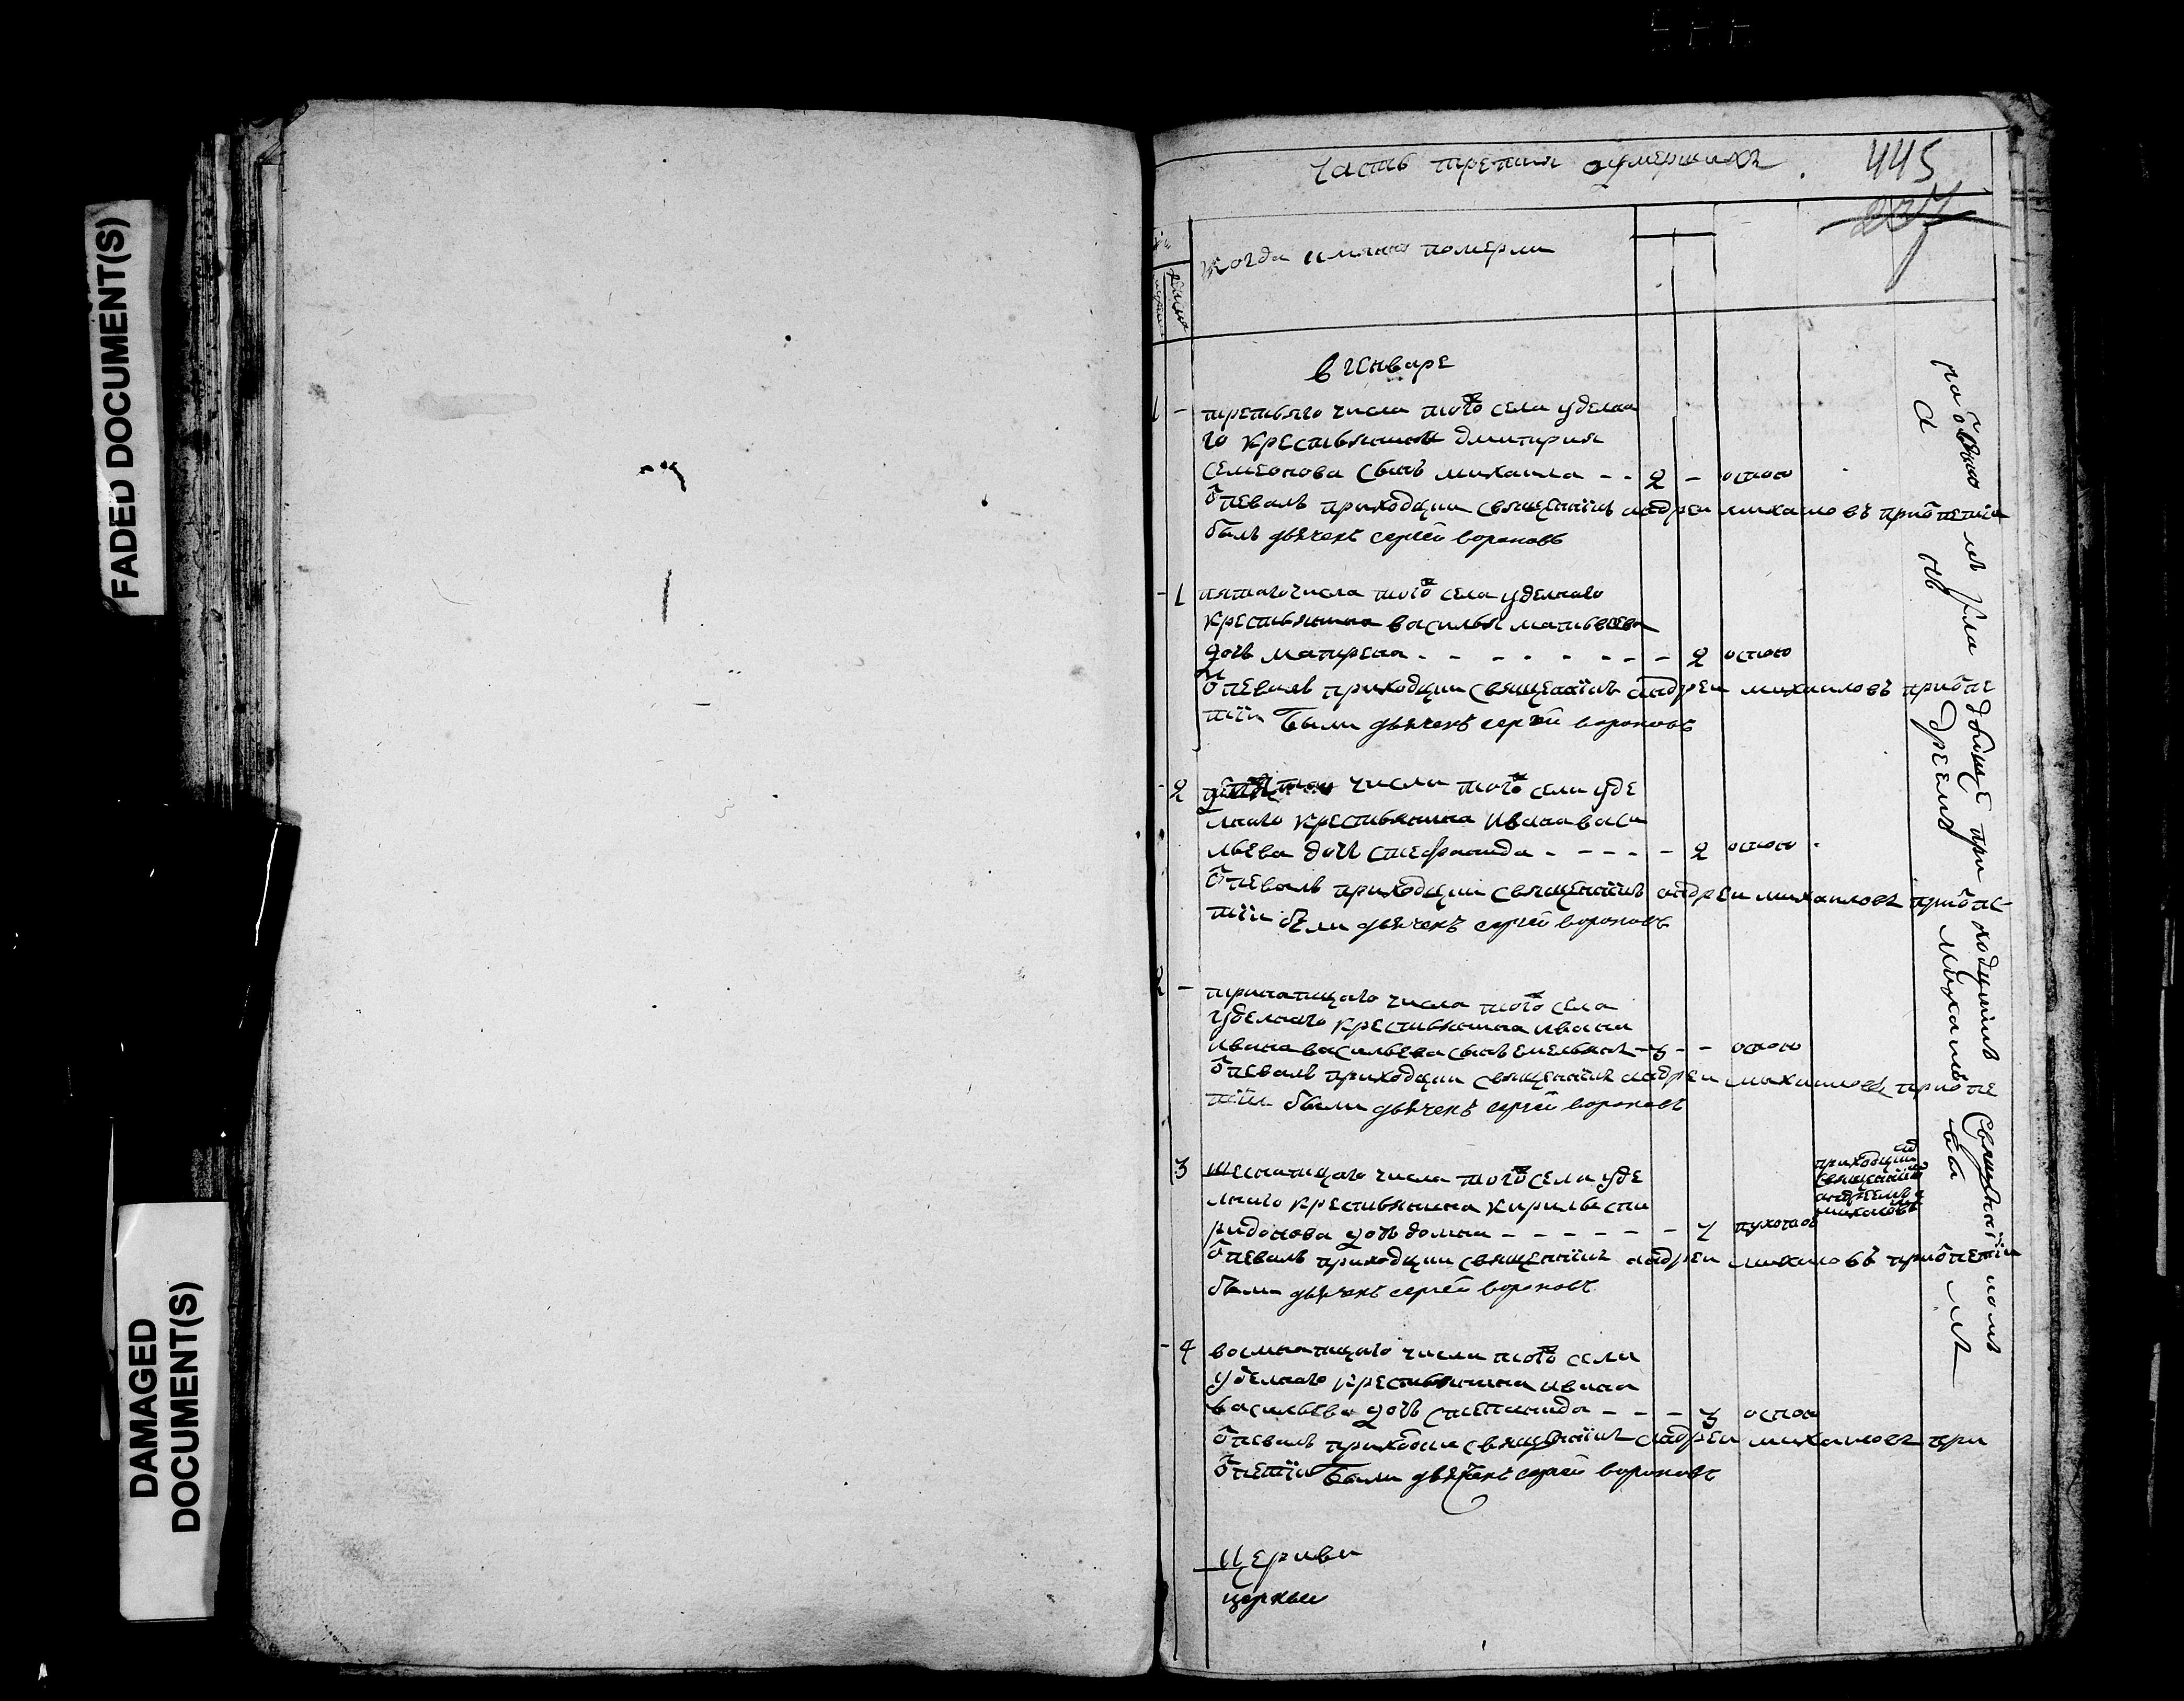 FADED DOCUMENT(S)
DAMAGED
DOCUMENT(S)
Часть третия оумершихъ. 445
237
когда имянно померли
в Генваре
1 - третьяго числа того села уделна
го крестьянина дмитрия
семеонова сынъ михаила - - 2 - оспою
ѿпевалъ приходцки священникъ андреи михаиловъ при ѿпетии
былъ дьячекъ сергей вороновъ
- 1 пятаго числа того села уделнаго
крестьянина василья матвеева
дочь матрена - - - - - - - 2 оспою
ѿпевалъ приходцки священникъ андреи михаиловъ при ѿпе
тии были дьячекъ сергей вороновъ
- 2 числа того села уде
лнаго крестьянина Ивана васи
льева дочь стефанида - - - - - 2 оспою
ѿпевалъ приходцки священникъ андреи михаиловъ при ѿпе
тии были дьячекъ сергей вороновъ
2 - тринатцаго числа того села
уделнаго крестьянина ивана
ивана васильева сынъ емельянъ - 3 - - оспою
ѿпевалъ приходцки священникъ андреи михаиловъ при ѿпе
тии были дьячекъ сергей вороновъ
3 шеснатцаго числа того села уде
лнаго крестьянина кирилы спи
ридонова дочь домна - - - - - -
ѿпевалъ приходцки священникъ андреи михаиловъ при ѿпетии
были дьячекъ сергей вороновъ
- 4 восмнатцаго числа того села
уделнаго крестьянина ивана
васильева дочь степанида - - - 3 оспою
ѿпевалъ приходцки священникъ андреи михаиловъ при
ѿпетии были дьячекъ сергей вороновъ
церкви
приходцки
на ѡбщемъ кладбище приходцкимъ священникомъ
андреемъ михаиловымъ